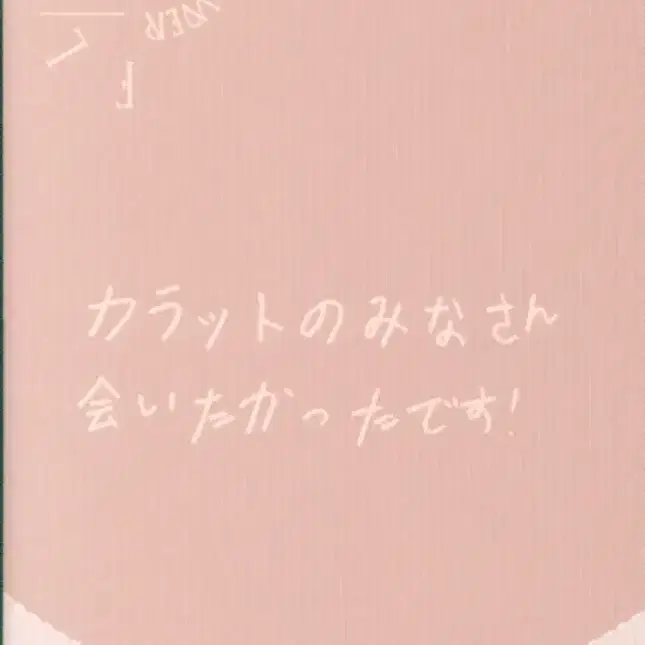 カラットのみなさん
会いたかったです!